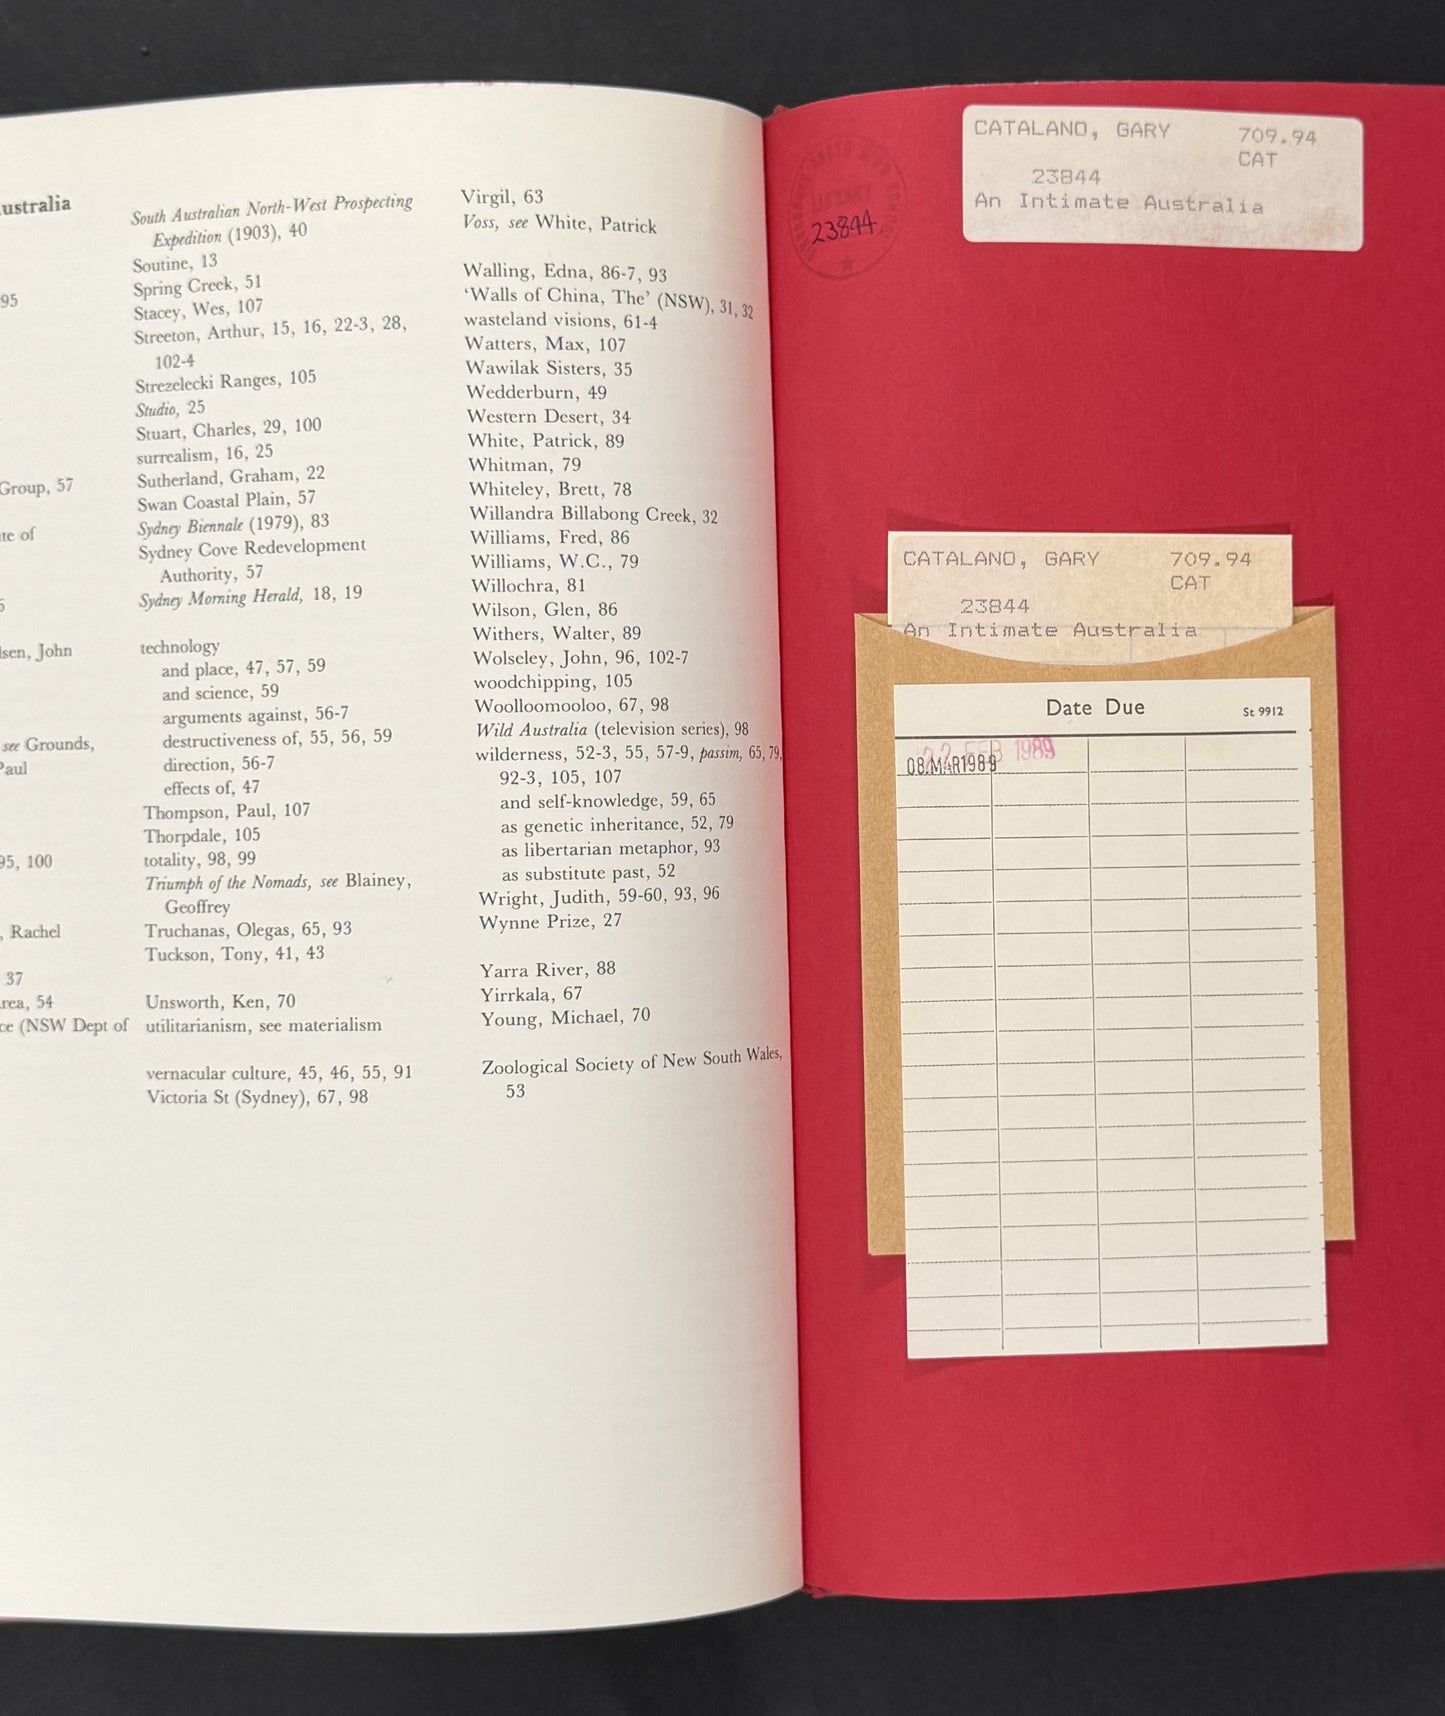 ustralia
95
Group, 57
te of
lsen, John
see Grounds,
Paul
95, 100
, Rachel
37
rea, 54
ce (NSW Dept of
South Australian North-West Prospecting
Expedition (1903), 40
Soutine, 13
Spring Creek, 51
Stacey, Wes, 107
Streeton, Arthur, 15, 16, 22-3, 28,
102-4
Strezelecki Ranges, 105
Studio, 25
Stuart, Charles, 29, 100
surrealism, 16, 25
Sutherland, Graham, 22
Swan Coastal Plain, 57
Sydney Biennale (1979), 83
Sydney Cove Redevelopment
Authority, 57
Sydney Morning Herald, 18, 19
technology
and place, 47, 57, 59
and science, 59
arguments against, 56-7
destructiveness of, 55, 56, 59
direction, 56-7
effects of, 47
Thompson, Paul, 107
Thorpdale, 105
totality, 98, 99
Triumph of the Nomads, see Blainey,
Geoffrey
Truchanas, Olegas, 65, 93
Tuckson, Tony, 41, 43
Unsworth, Ken, 70
utilitarianism, see materialism
vernacular culture, 45, 46, 55, 91
Victoria St (Sydney), 67, 98
Virgil, 63
Voss, see White, Patrick
Walling, Edna, 86-7, 93
‘Walls of China, The’ (NSW), 31, 32
wasteland visions, 61-4
Watters, Max, 107
Wawilak Sisters, 35
Wedderburn, 49
Western Desert, 34
White, Patrick, 89
Whitman, 79
Whiteley, Brett, 78
Willandra Billabong Creek, 32
Williams, Fred, 86
Williams, W.C., 79
Willochra, 81
Wilson, Glen, 86
Withers, Walter, 89
Wolseley, John, 96, 102-7
woodchipping, 105
Woolloomooloo, 67, 98
Wild Australia (television series), 98
wilderness, 52-3, 55, 57-9, passim, 65, 79,
92-3, 105, 107
and self-knowledge, 59, 65
as genetic inheritance, 52, 79
as libertarian metaphor, 93
as substitute past, 52
Wright, Judith, 59-60, 93, 96
Wynne Prize, 27
Yarra River, 88
Yirrkala, 67
Young, Michael, 70
Zoological Society of New South Wales,
53
LIBRARY
23844
CATALANO, GARY 709.94
CAT
23844
An Intimate Australia
CATALANO, GARY 709.94
CAT
23844
An Intimate Australia
Date Due St 9912
22 FEB 1989
08 MAR 1989